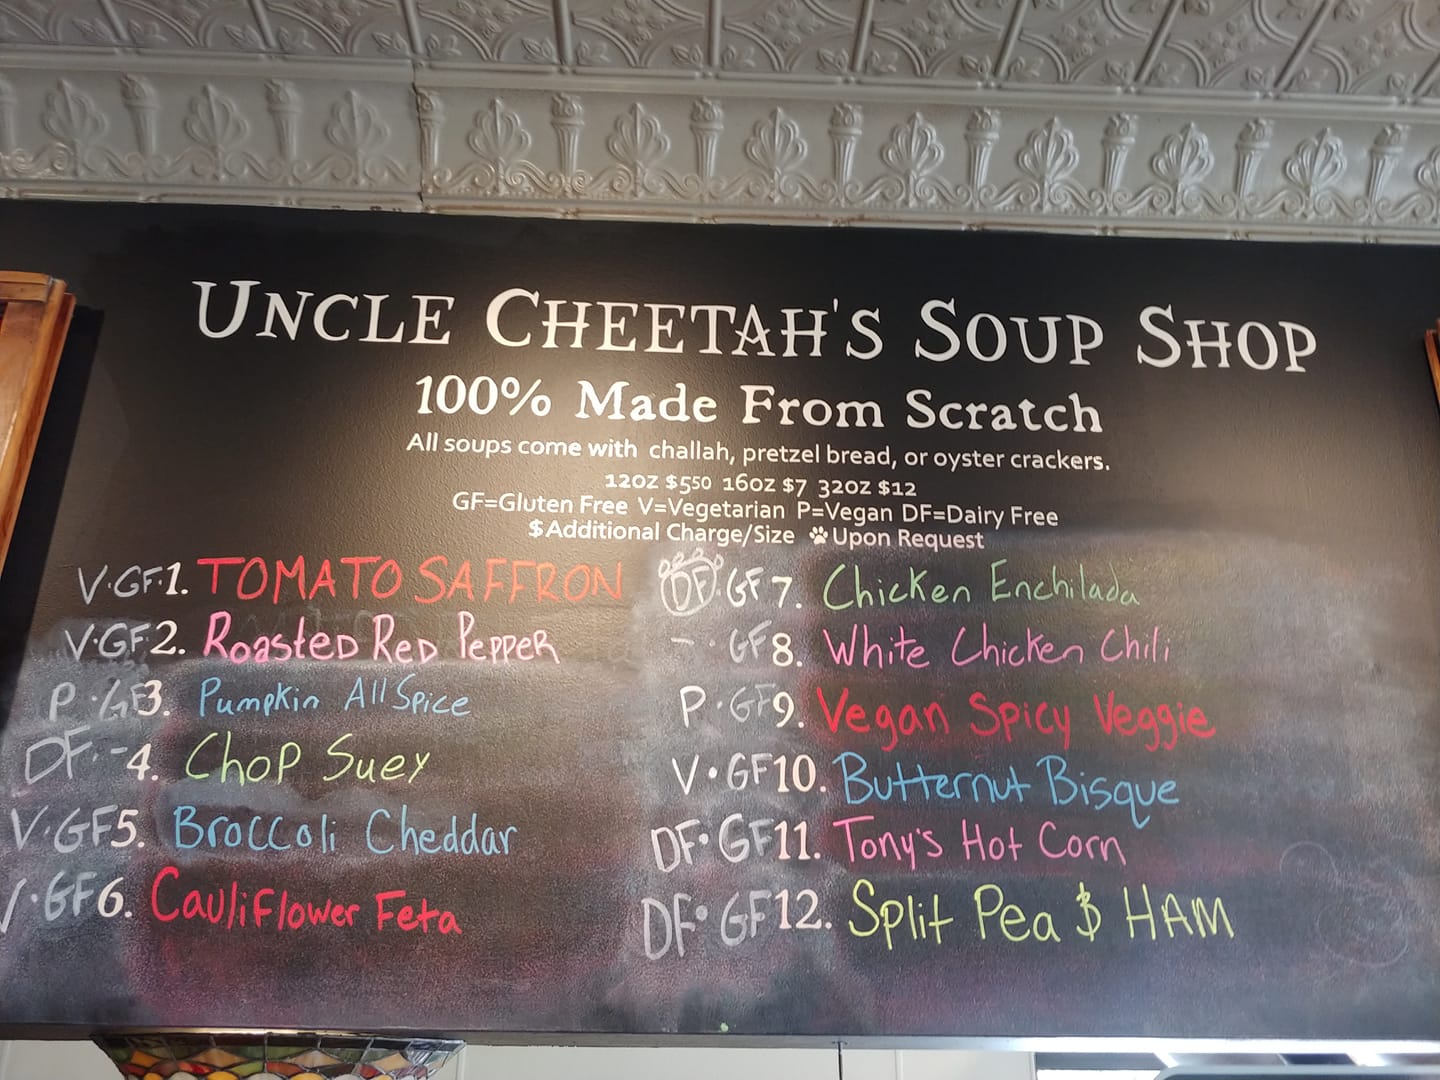 UNCLE CHEETAH'S SOUP SHOP
100% Made From Scratch
All soups come with challah, pretzel bread, or oyster crackers.
12oz $5.50 16oz $7 32oz $12
GF=Gluten Free V=Vegetarian P=Vegan DF=Dairy Free
$Additional Charge/Size 🐾Upon Request
V·GF 1. TOMATO SAFFRON
V·GF 2. Roasted Red Pepper
P·GF 3. Pumpkin All Spice
DF·- 4. Chop Suey
V·GF 5. Broccoli Cheddar
V·GF 6. Cauliflower Feta
DF·GF 7. Chicken Enchilada
-·GF 8. White Chicken Chili
P·GF 9. Vegan Spicy Veggie
V·GF 10. Butternut Bisque
DF·GF 11. Tony's Hot Corn
DF·GF 12. Split Pea & HAM